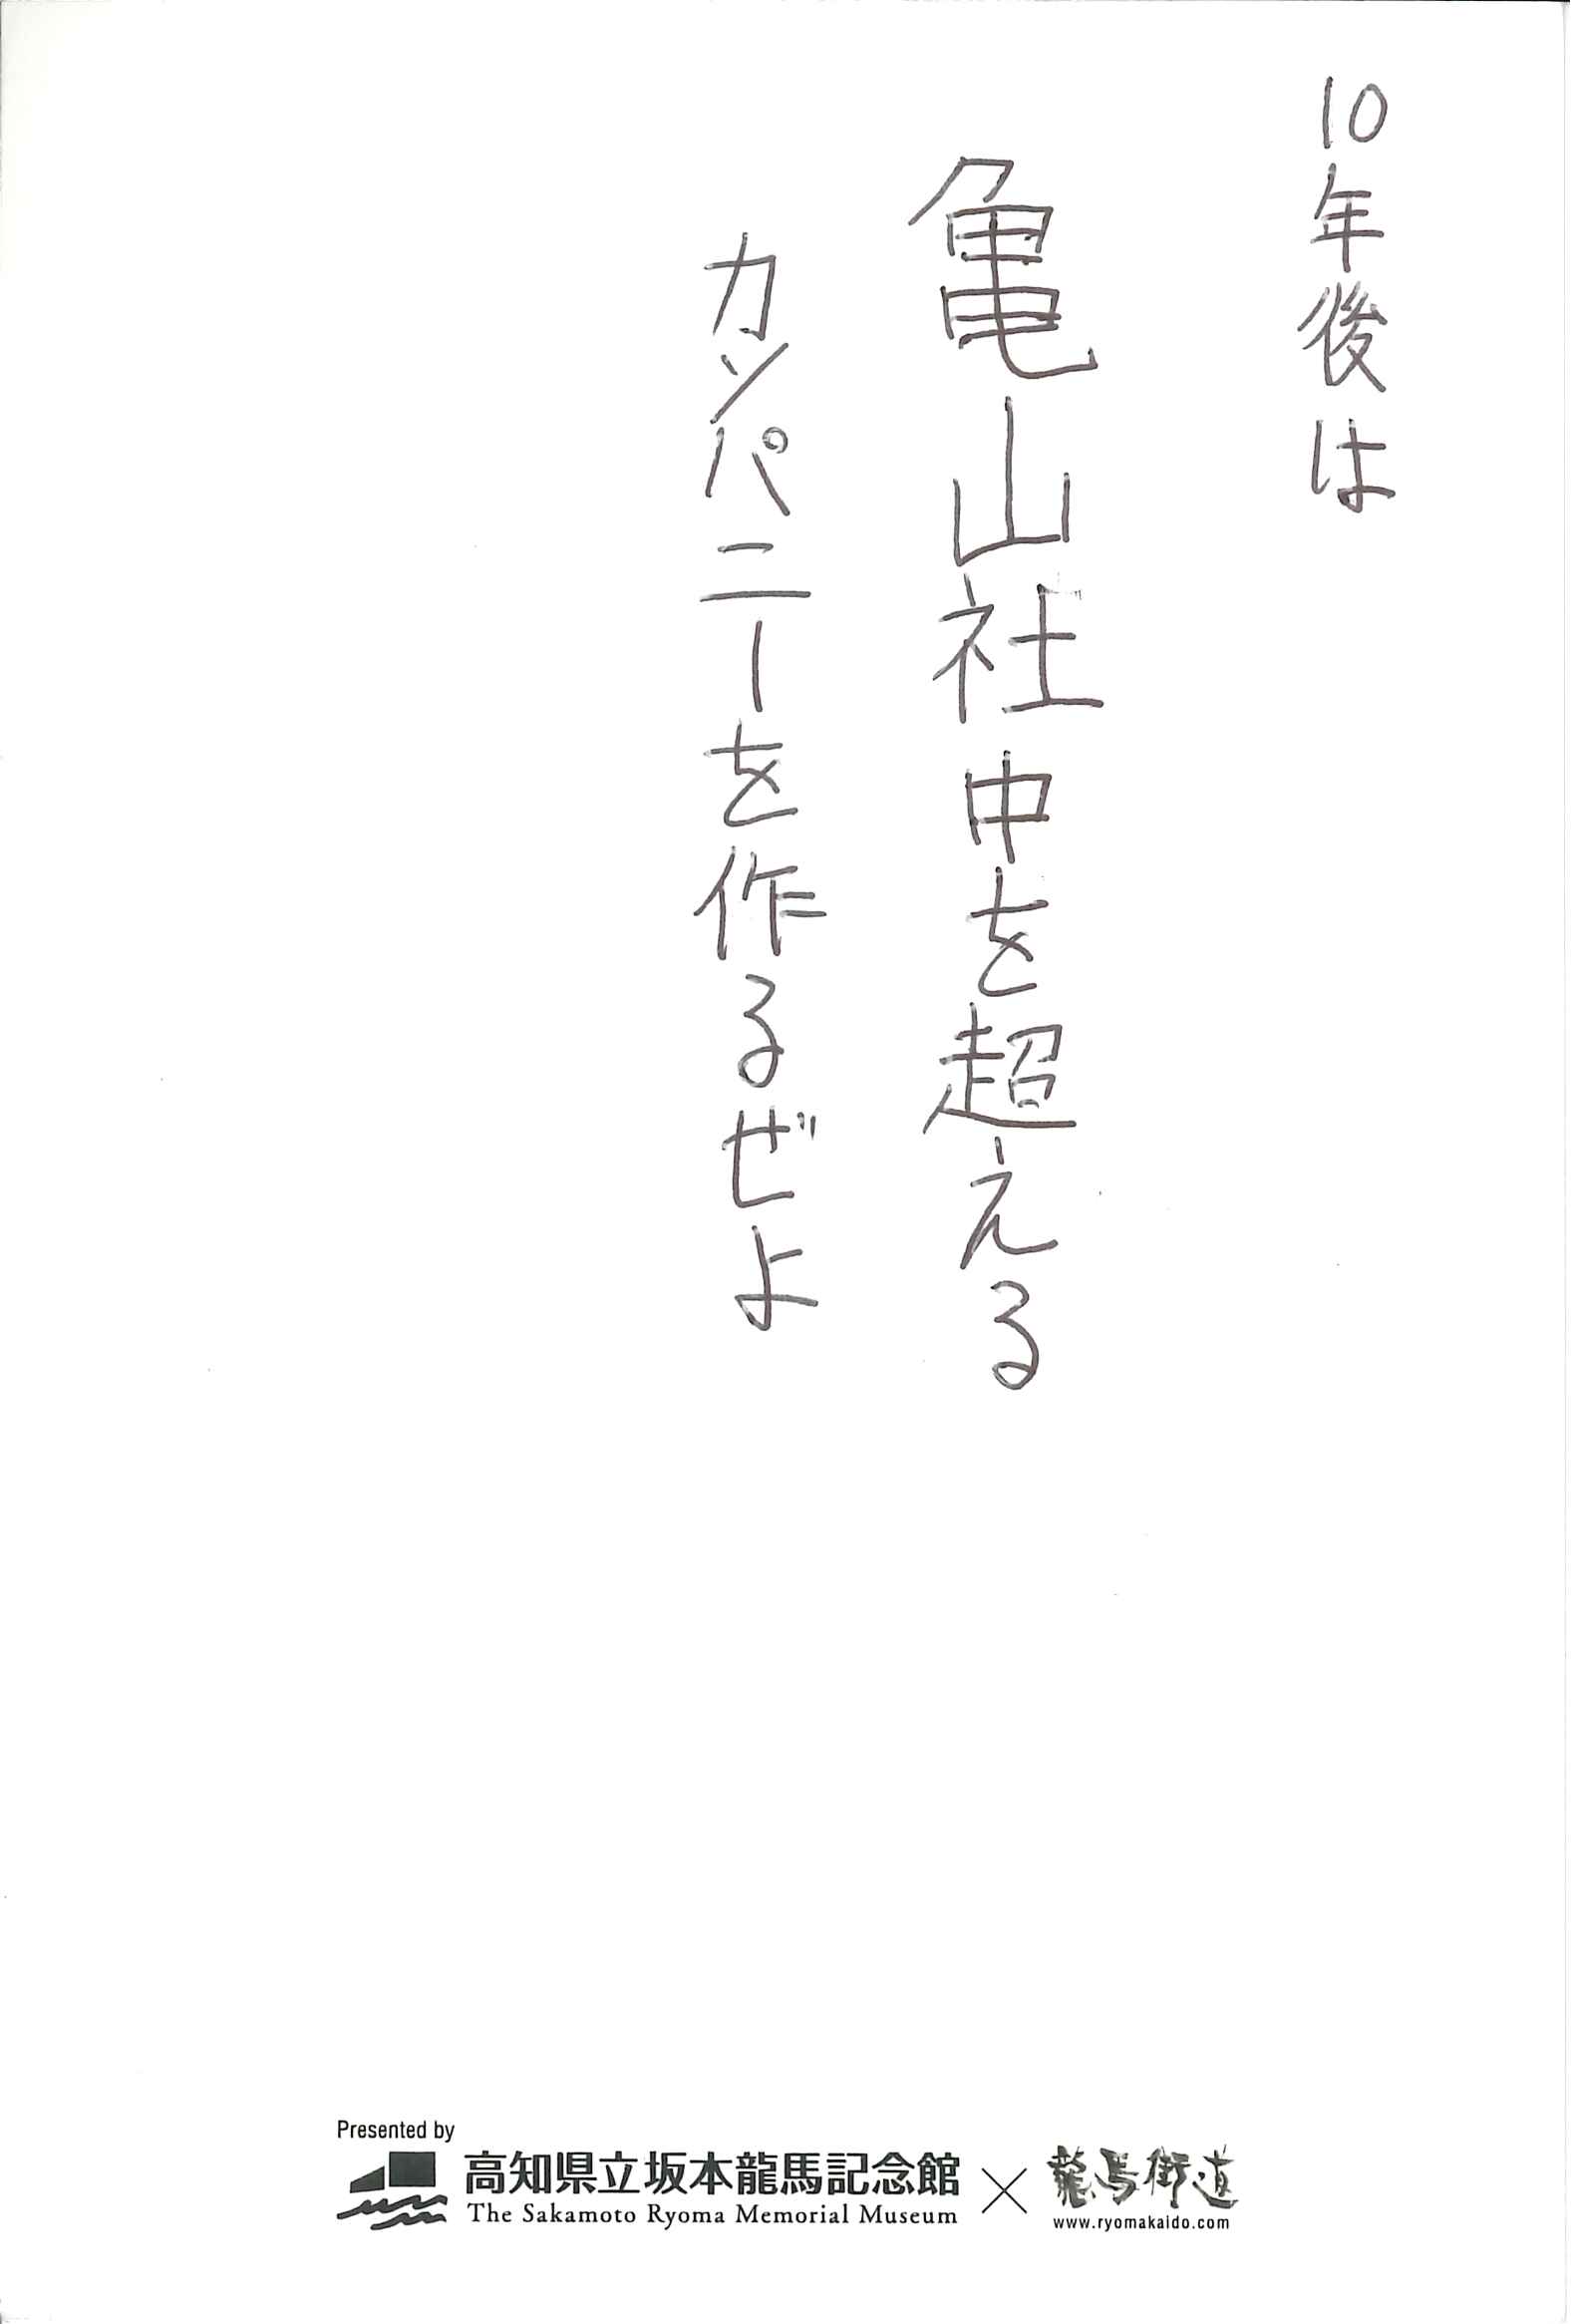 10年後は
亀山社中を超える
カンパニーを作るぜよ
Presented by
高知県立坂本龍馬記念館
The Sakamoto Ryoma Memorial Museum
×
龍馬街道
www.ryomakaido.com